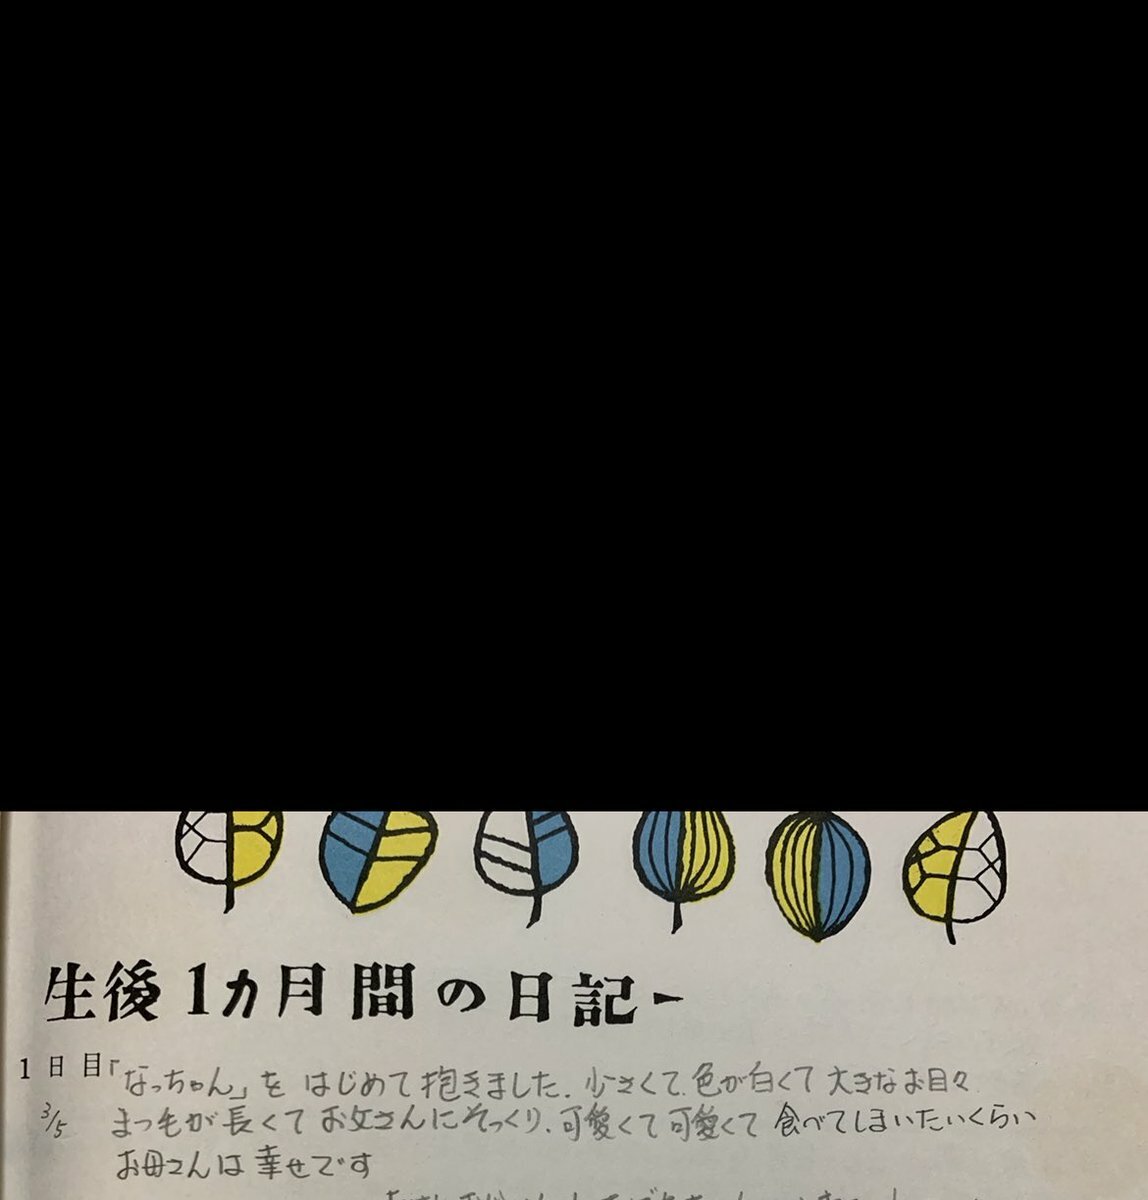 生後1カ月間の日記-
1日目「なっちゃん」を はじめて抱きました. 小さくて 色が白くて 大きなお目々
3/5 まつ毛が長くて お父さんにそっくり. 可愛くて可愛くて 食べてしまいたいくらい
お母さんは 幸せです